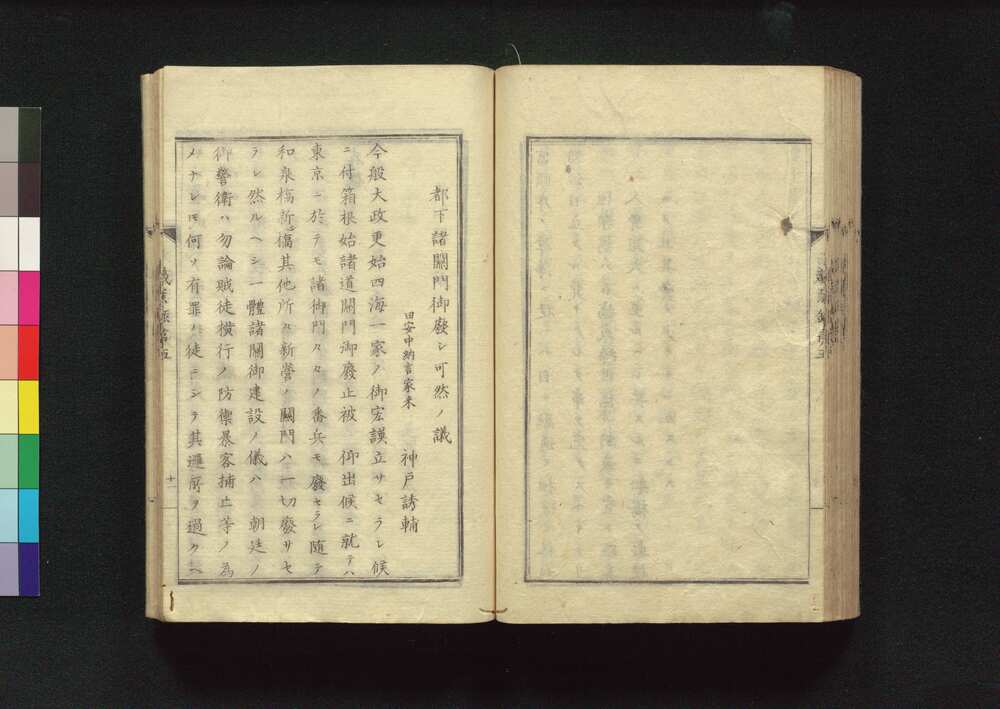 都下諸關門御廢シ可然ノ議
田安中納言家来 神戸誘輔
今般大政更始四海一家ノ御宏謨立サセラレ候
ニ付箱根始諸道關門御廢止被 仰出候ニ就テハ
東京ニ於テモ諸御門々々ノ番兵モ廢セラレ隨テ
和泉橋新シ橋其他所々新營ノ關門ハ一切廢サセ
ラレ然ルヘシ一體諸關御建設ノ儀ハ 朝廷ノ
御警衛ハ勿論賊徒横行ノ防禦暴客捕止等ノ為
メナレモ何ソ有罪ノ徒ニシテ其邏所ヲ過クヘ
十一